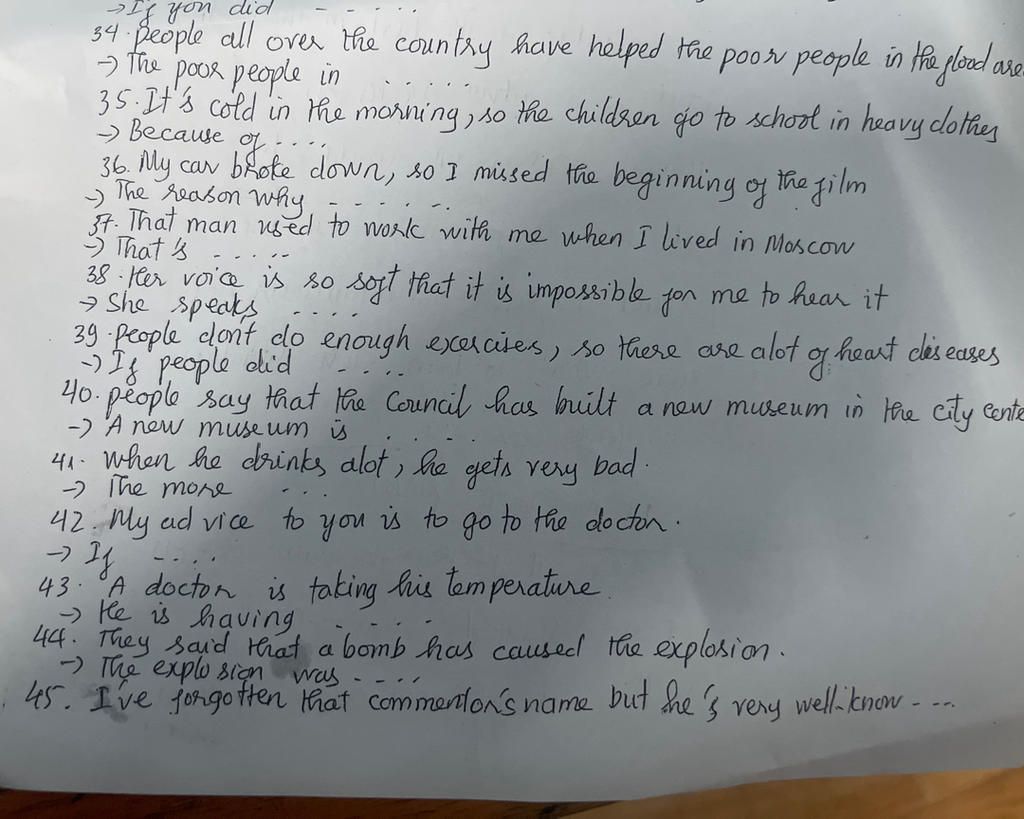 → If you did - - - - -
34. People all over the country have helped the poor people in the flood are
→ The poor people in . . . . . .
35. It's cold in the morning, so the children go to school in heavy clothes
→ Because of . . . .
36. My car broke down, so I missed the beginning of the film
→ The reason why - - - - - -
37. That man used to work with me when I lived in Moscow
→ That's . . . . .
38. Her voice is so soft that it is impossible for me to hear it
→ She speaks . . . .
39. People don't do enough exercises, so there are alot of heart diseases
→ If people did - . . . .
40. People say that the Council has built a new museum in the city cente
→ A new museum is . . . . .
41. When he drinks alot, he gets very bad.
→ The more - . .
42. My advice to you is to go to the doctor.
→ If - . . .
43. A doctor is taking his temperature.
→ He is having - - - - -
44. They said that a bomb has caused the explosion.
→ The explosion was - . . . .
45. I've forgotten that name but he's very well-know - - - -